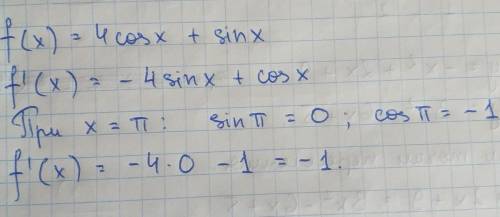 f(x) = 4cosx + sinx
f'(x) = - 4sinx + cosx
При x = π : sinπ = 0 ; cosπ = -1
f'(x) = -4·0 -1 = -1.